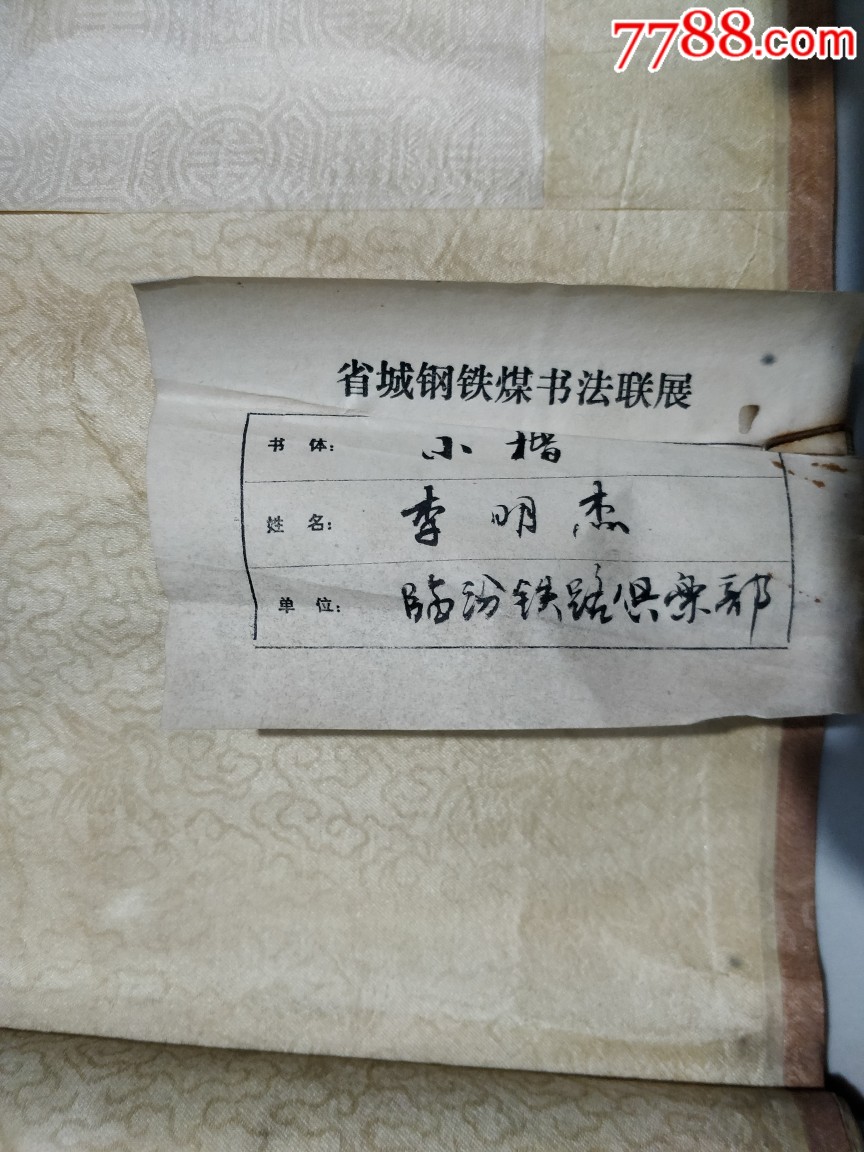 7788.com
省城钢铁煤书法联展
书体： 小楷
姓名： 李明杰
单位： 临汾铁路俱乐部